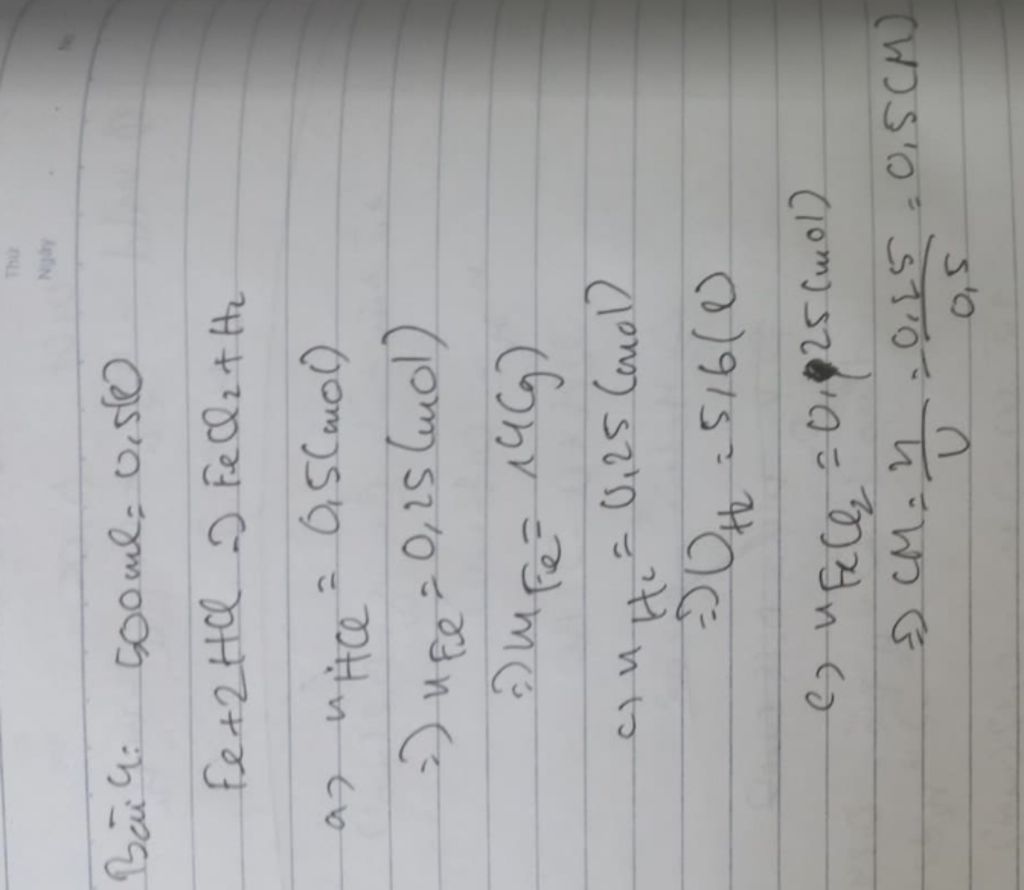 Thứ
Ngày
No
Bài 4: 500ml = 0,5(l)
Fe + 2HCl → FeCl₂ + H₂
a) nHCl = 0,5(mol)
=) nFe = 0,25(mol)
=) mFe = 14(g)
c) nH₂ = 0,25(mol)
=) VH₂ = 5,6(l)
c) nFeCl₂ = 0,25(mol)
=) CM = n/V = 0,25/0,5 = 0,5(M)